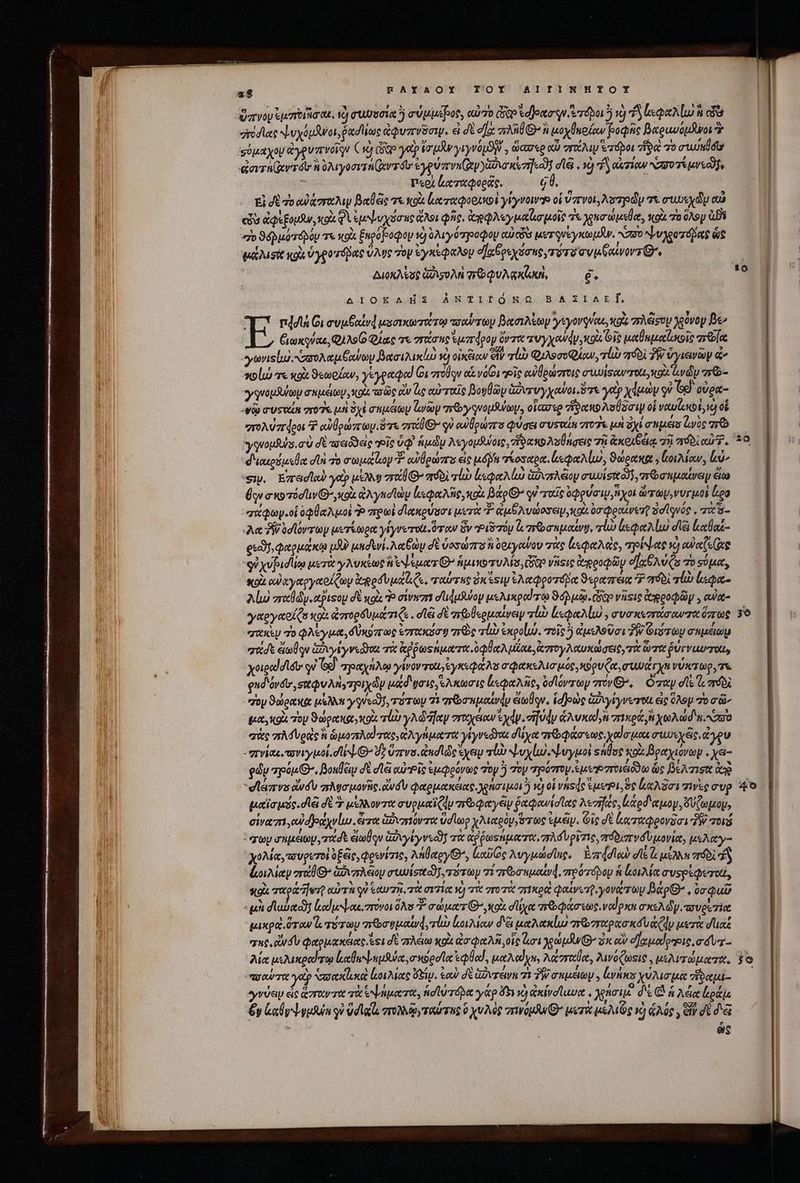 28 ΠΑΥΛΟΥ ΤΟΥ ΑΙΓΙΝΗΤΟΥ
ὕπνον ἐμποιῆσαι, καὶ συνουσία δὲ σύμμετρος, αὐτὸ τοῦτο ἔδρασεν. ἕτεροι δὲ καὶ τὴν κεφαλὴν ἢ τοὺς
πόδας ψυχόμενοι, ῥαδίως ἀφυπνοῦσιν. εἰ δὲ διὰ πλῆθος ἢ μοχθηρίαν τροφῆς βαρυνόμενοι τὸν
στόμαχον ἀγρυπνοῖεν (καὶ τοῦτο γὰρ ἴσμεν γιγνόμενον, ὥσπερ αὖ πάλιν ἕτεροι παρὰ τὸ σύνηθες
ἀσιτήσαντες ἢ ὀλιγοσιτήσαντες ἠγρύπνησαν) ἐπισκέπτεσθαι δεῖ, καὶ τὴν αἰτίαν ὑποτέμνεσθαι.
Περὶ καταφορᾶς. ϟθ.
Εἰ δὲ τὸ ἀνάπαλιν βαθεῖς τε καὶ καταφορικοὶ γίγνοιντο οἱ ὕπνοι, λουτρῶν τε συνεχῶν αὐ
τοὺς ἀφέξομεν, καὶ τῆς ἐμψυχούσης ἁλουργῆς, ἀποφλεγματισμοῖς τε χρησώμεθα, καὶ τὸ ὅλον ἐπὶ
τὸ θερμότερόν τε καὶ ξηρότροφον καὶ ὀλιγότροφον αὐτοὺς μετενέγκωμεν. ὑπὸ ψυχροτέρας ὡς
μάλιστα καὶ ὑγροτέρας ὕλης τὸν ἐγκέφαλον διαβρεχούσης, τούτου συμβαίνοντος.
Διοκλέους ἐπιστολὴ προφυλακτική, ρ. 10
ΔΙΟΚΛΗΣ ΑΝΤΙΓΟΝΩ ΒΑΣΙΛΕΙ,
ΕΠειδή σοι συμβαίνει μουσικωτάτῳ πάντων βασιλέων γεγονέναι, καὶ πλεῖστον χρόνον βε
βιωκέναι, φιλοσοφίας τε πάσης ἔμπειρον ὄντα τυγχάνειν, καὶ τοῖς μαθηματικοῖς πρωτα
γωνιστὴν. ὑπολαμβάνων βασιλικὴν καὶ οἰκείαν εἶναι τὴν φιλοσοφίαν, τὴν περὶ τῶν ὑγιεινῶν ἀ
κοήν τε καὶ θεωρίαν, γέγραφά σοι πόθεν αἱ νόσοι τοῖς ἀνθρώποις συνίστανται, καὶ τίνων προ
γενομένων σημείων, καὶ πῶς ἄν τις αὐταῖς βοηθῶν ἐπιτυγχάνοι. οὔτε γὰρ χειμὼν ἐν τῷ οὐρα
νῷ συσταίη ποτὲ μὴ οὐχὶ σημείων τινῶν προγενομένων, οἷσπερ παρακολουθοῦσιν οἱ ναυτικοὶ, καὶ οἱ
πολύπειροι τῶν ἀνθρώπων. οὔτε πάθος ἐν ἀνθρώπου φύσει συσταίη ποτὲ μὴ οὐχὶ σημείου τινὸς προ
γενομένου. σὺ δὲ πεισθεὶς τοῖς ὑφ' ἡμῶν λεγομένοις, παρακολουθήσεις τῇ ἀκριβείᾳ τῇ περὶ αὐτῶν. 20
διαιρούμεθα δὴ τὸ σωμάτιον τοῦ ἀνθρώπου εἰς μέρη τέσσαρα. κεφαλὴν, θώρακα, κοιλίαν, κύ
στιν. Ἐπειδὰν γὰρ μέλλῃ πάθος περὶ τὴν κεφαλὴν ἐπιπλεῖον συνίστασθαι, προσημαίνειν εἴω
θεν σκοτόδινος, καὶ ἀλγηδὼν κεφαλῆς, καὶ βάρος ἐν ταῖς ὀφρύσιν, ἦχοι ὤτων, νυγμοὶ κρο
τάφων. οἱ ὀφθαλμοὶ τὸ πρωὶ δακρύουσι μετὰ τοῦ ἀμβλυώσσειν, καὶ ὀσφραίνεται οὐδενὸς. τὰ οὖ
λα τῶν ὀδόντων μετέωρα γίγνεται. ὅταν οὖν τοιοῦτόν τι προσημαίνῃ, τὴν κεφαλὴν δεῖ καθαί
ρεσθαι, φαρμάκῳ μὲν μηδενί. λαβὼν δὲ ὑσσώπου ἢ ὀριγάνου τὰς κεφαλὰς, τρίψας καὶ ἀναζέσας
ἐν χυτριδίῳ μετὰ γλυκέως ἢ ἑψέματος ἡμικοτυλίου, τοῦτο νῆστις ἀπορροφῶν διακλύζου τὸ στόμα,
καὶ ἀναγαργαρίζων ἀπορευμάτιζε. ταύτης οὐκ ἔστιν ἐλαφροτέρα θεραπεία τῶν περὶ τὴν κεφα
λὴν παθῶν. ἄριστον δὲ καὶ τὸ σίνηπι διδόμενον μελικράτῳ θερμῷ. τοῦτο νῆστις ἀπορροφῶν, ἀνα
γαργαρίζου καὶ ἀπορευμάτιζε. δεῖ δὲ προθερμαίνειν τὴν κεφαλὴν, συσκεπάσαντα ὅπως 30
τακὲν τὸ φλέγμα, εὐκόπως ἐπακούσῃ πρὸς τὴν ἐκροήν. τοῖς δὲ ἀμελοῦσι τῶν τοιούτων σημείων
τάδε εἴωθεν ἐπιγίγνεσθαι τὰ ἀρρωστήματα. ὀφθαλμίαι, ἀπογλαυκώσεις, τὰ ὦτα ῥύγνυνται,
χοιράδες ἐν τῷ τραχήλῳ γίνονται, ἐγκεφάλου σφακελισμός, κόρυζα, συνάγχη νύκτωρ, τε
ρηδόνες, σταφυλή, τριχῶν μάδησις, ἕλκωσις κεφαλῆς, ὀδόντων πόνος. Ὅταν δέ τι περὶ
τὸν θώρακα μέλλῃ γενέσθαι, τούτων τι προσημαίνειν εἴωθεν. ἱδρὼς ἐπιγίγνεται εἰς ὅλον τὸ σῶ
μα, καὶ τὸν θώρακα, καὶ τὴν γλῶτταν παχεῖαν ἔχειν. πτύειν ἁλυκὰ, ἢ πικρά, ἢ χωλώδη. ὑπὸ
τὰς πλευρὰς ἢ ὠμοπλάτας, ἀλγήματα γίγνεσθαι δίχα προφάσεως. χάσμαι συνεχεῖς. ἀγρυ
πνίαι. πνιγμοί. δίψος ἐξ ὕπνου. ἀηδῶς ἔχειν τὴν ψυχὴν. ψυγμοὶ στήθους καὶ βραχιόνων. χει
ρῶν τρόμος. βοηθεῖν δὲ δεῖ αὐτοῖς ἐμφρόνως τόνδε τὸν τρόπον. ἔμετον ποιείσθω ὡς βέλτιστα ἀπὸ
δείπνου ἄνευ πλησμονῆς. ἄνευ φαρμακείας. χρήσιμοι δὲ καὶ οἱ νήστεις ἔμετοι, οὓς καλοῦσί τινες συρ 40
μαϊσμούς. δεῖ δὲ τὸν μέλλοντα συρμαΐζειν προφαγεῖν ῥαφανίδας λεπτάς, κάρδαμον, εὔζωμον,
σίναπι, ἀνδράχνην. εἶτα ἐπιπιόντα ὕδωρ χλιαρὸν, οὕτως ἐμεῖν. τοῖς δὲ καταφρονοῦσι τῶν τοιού
των σημείων, τάδε εἴωθεν ἐπιγίγνεσθαι τὰ ἀρρωστήματα. πλευρῖτις, περιπνευμονία, μελαγ
χολία, πυρετοὶ ὀξεῖς, φρενίτις, λήθαργος, καῦσος λυγμώδης. Ἐπειδὰν δέ τι μέλλῃ περὶ τὴν
κοιλίαν πάθος ἐπιπλεῖον συνίστασθαι, τούτων τι προσημαίνει, πρότερον ἡ κοιλία συστρέφεται,
καὶ ταράττεται αὐτὴ ἐν ἑαυτῇ. τὰ σιτία καὶ τὰ ποτὰ πικρὰ φαίνεται. γονάτων βάρος, ὀσφῦν
μὴ δύνασθαι κάμψαι. πόνοι ὅλου τοῦ σώματος, καὶ δίχα προφάσεως. νάρκη σκελῶν. πυρέτια
μικρά. ὅταν τι τούτων προσημαίνῃ, τὴν κοιλίαν δεῖ μαλακὴν προπαρασκευάζειν μετὰ διαί
της, ἄνευ φαρμακείας. ἔστι δὲ πλείω καὶ ἀσφαλῆ, οἷς τισι χρώμενος οὐκ ἂν διαμάρτοις. σεῦτ
λία μελικράτῳ καθηψημένα, σκόρδια ἑφθὰ, μαλάχη, λάπαθα, λινόζωστις, μελιτώματα. 50
πάντα γὰρ ὑπακτικὰ κοιλίας ἐστίν. ἐὰν δὲ ἐπιτείνῃ τι τῶν σημείων, κνήκου χύλισμα παραμι
γνύειν εἰς ἅπαντα τὰ ἑψήματα, ἡδύτερα γάρ ἐστι καὶ ἀκίνδυνα. χρήσιμον δὲ καὶ ἡ λεία κράμ
βη καθηψημένη ἐν ὕδατι πολλῷ, ταύτης ὁ χυλὸς πινόμενος μετὰ μέλιτος καὶ ἁλὸς, εἶναι δὲ δεῖ
ὡς